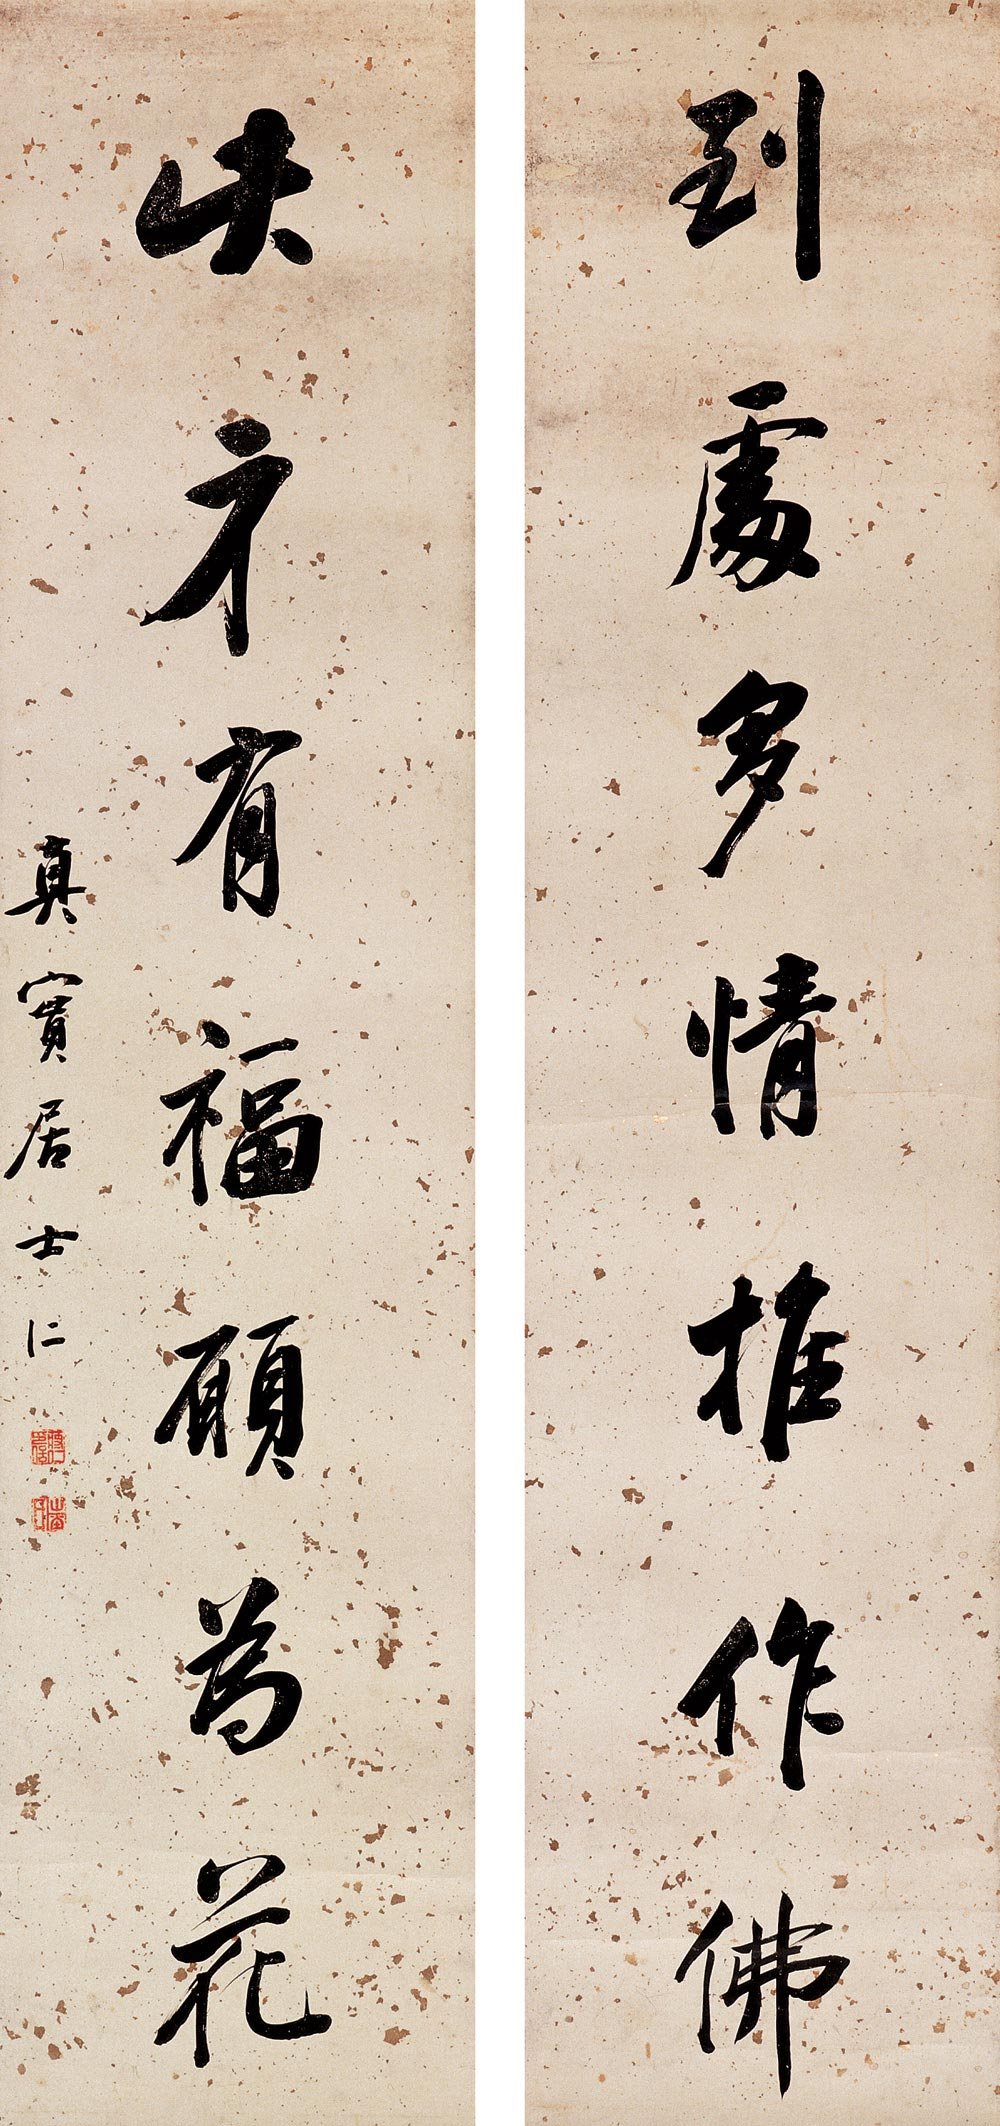 到處多情推作佛
才有福願為花
真實居士仁